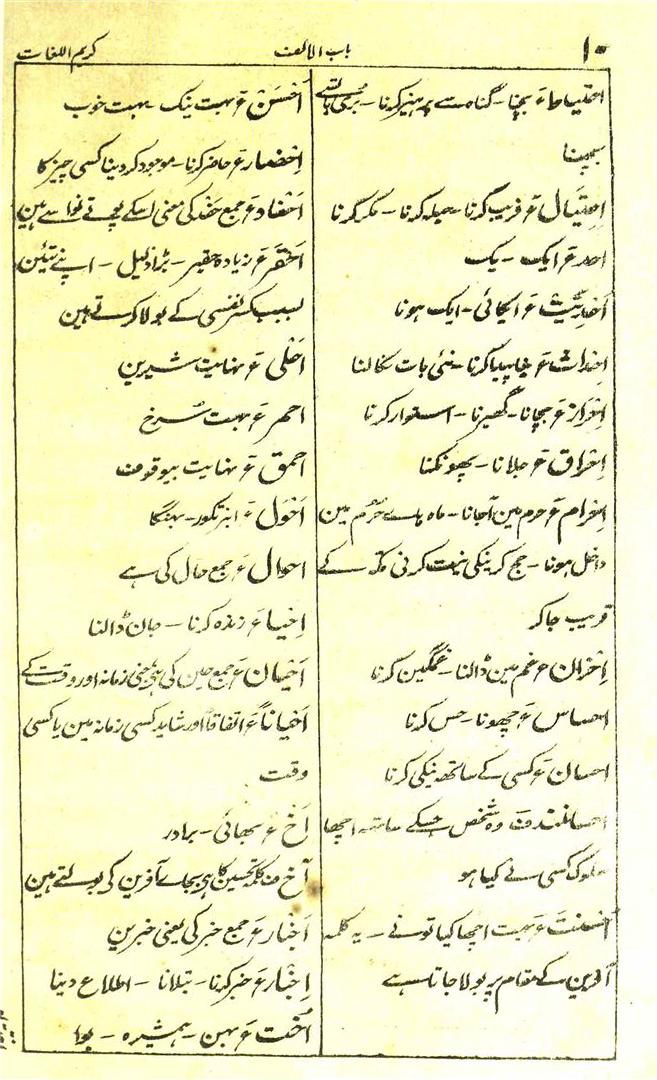 ۱۰
باب الالف
کریم اللغات
احتیاط ع بچنا - گناہ سے پرہیز کرنا - بری بات سے
بچنا
اِحتِیَال ع فریب کرنا - حیلہ کرنا - مکر کرنا
احد ع ایک - یک
اَحَدِیَّت ع ایکائی - ایک ہونا
اِحْداث ع نیا پیدا کرنا - نئی بات نکالنا
اِحْراز ع بچانا - گھیرنا - استوار کرنا
اِحْراق ع جلانا - پھونکنا
اِحْرام ع حرم مین آجانا - ماہ ہاے حرم مین
داخل ہونا - حج کرنیکی نیت کرنی مکہ کے
قریب جاکر
اِحْزان ع غم مین ڈالنا - غمگین کرنا
احساس ع چھونا - حس کرنا
احسان ع کسی کے ساتھ نیکی کرنا
احسانمند ف وہ شخص جسکے ساتھ اچھا
سلوک کسی نے کیا ہو
اَحْسَنْتَ ع بہت اچھا کیا تو نے - یہ کلمہ
آفرین کے مقام پر بولا جاتا ہے
اَحْسَنْ ع بہت نیک - بہت خوب
اِحْضار ع حاضر کرنا - موجود کردینا کسی چیز کا
اَحْفاد ع جمع حفد کی معنی اسکے پوتے نواسے ہین
اَحْقَر ع زیادہ حقیر - بڑا ذلیل - اپنے تئین
بسبب کسر نفسی کے بولا کرتے ہین
اَحْلٰی ع نہایت شیرین
احمر ع بہت سرخ
احمق ع نہایت بیوقوف
اَحْوَل ع بھنگا
احوال ع جمع حال کی ہے
اِحْیا ع زندہ کرنا - جان ڈالنا
اَحْیَان ع جمع حین کی ہے یعنی زمانہ اور وقت کے
اَحْیاناً ع اتفاقاً اور شاید کسی زمانہ مین یا کسی
وقت
اَخ ع بھائی - برادر
آخ ف کلمہ تحسین کا ہے بجاے آفرین کی بولتے ہین
اَخْبار ع جمع خبر کی یعنی خبرین
اِخْبار ع خبر کرنا - بتلانا - اطلاع دینا
اُخْت ع بہن - ہمشیرہ - بوا